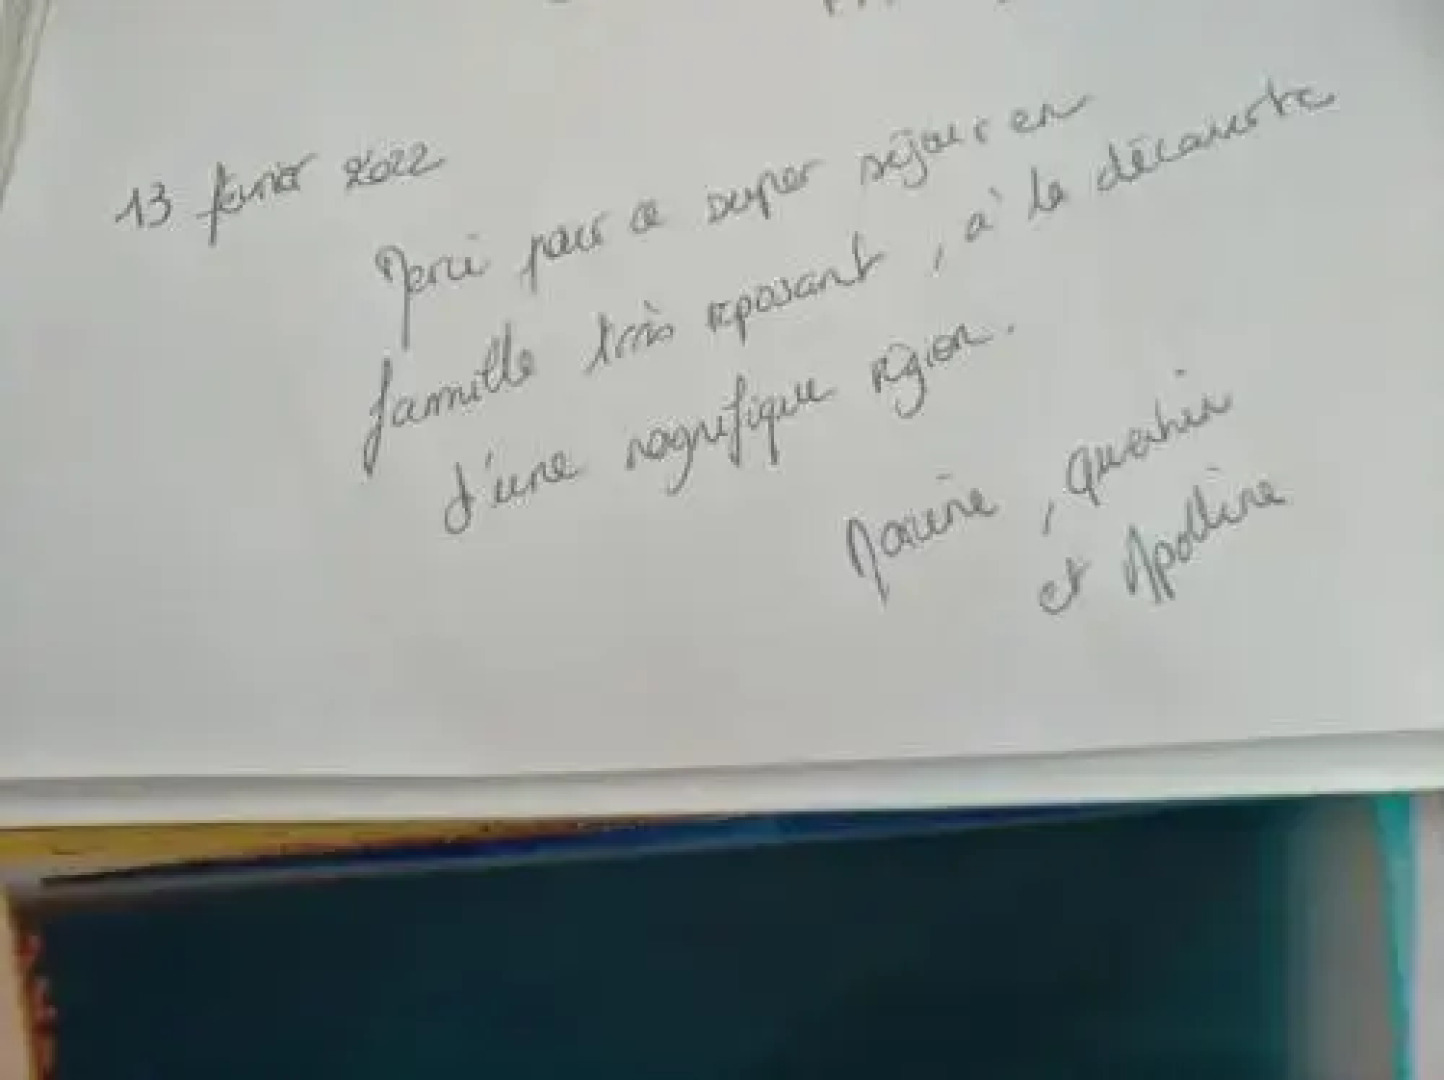 13 février 2022
Merci pour ce super séjour en
famille très reposant, à la découverte
d'une magnifique région.
Marine, Quentin
et Apolline